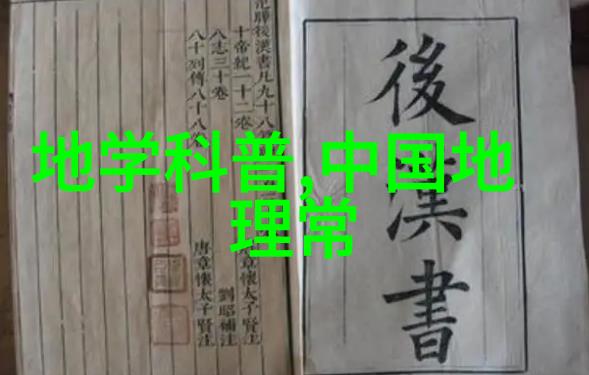 地学科普,中国地
理常
後漢書
范曄後漢書凡九十八
十帝紀一十二卷
八志三十卷
八十列傳八十八
唐章懷太子賢注
劉昭補注
唐章懷太子賢注